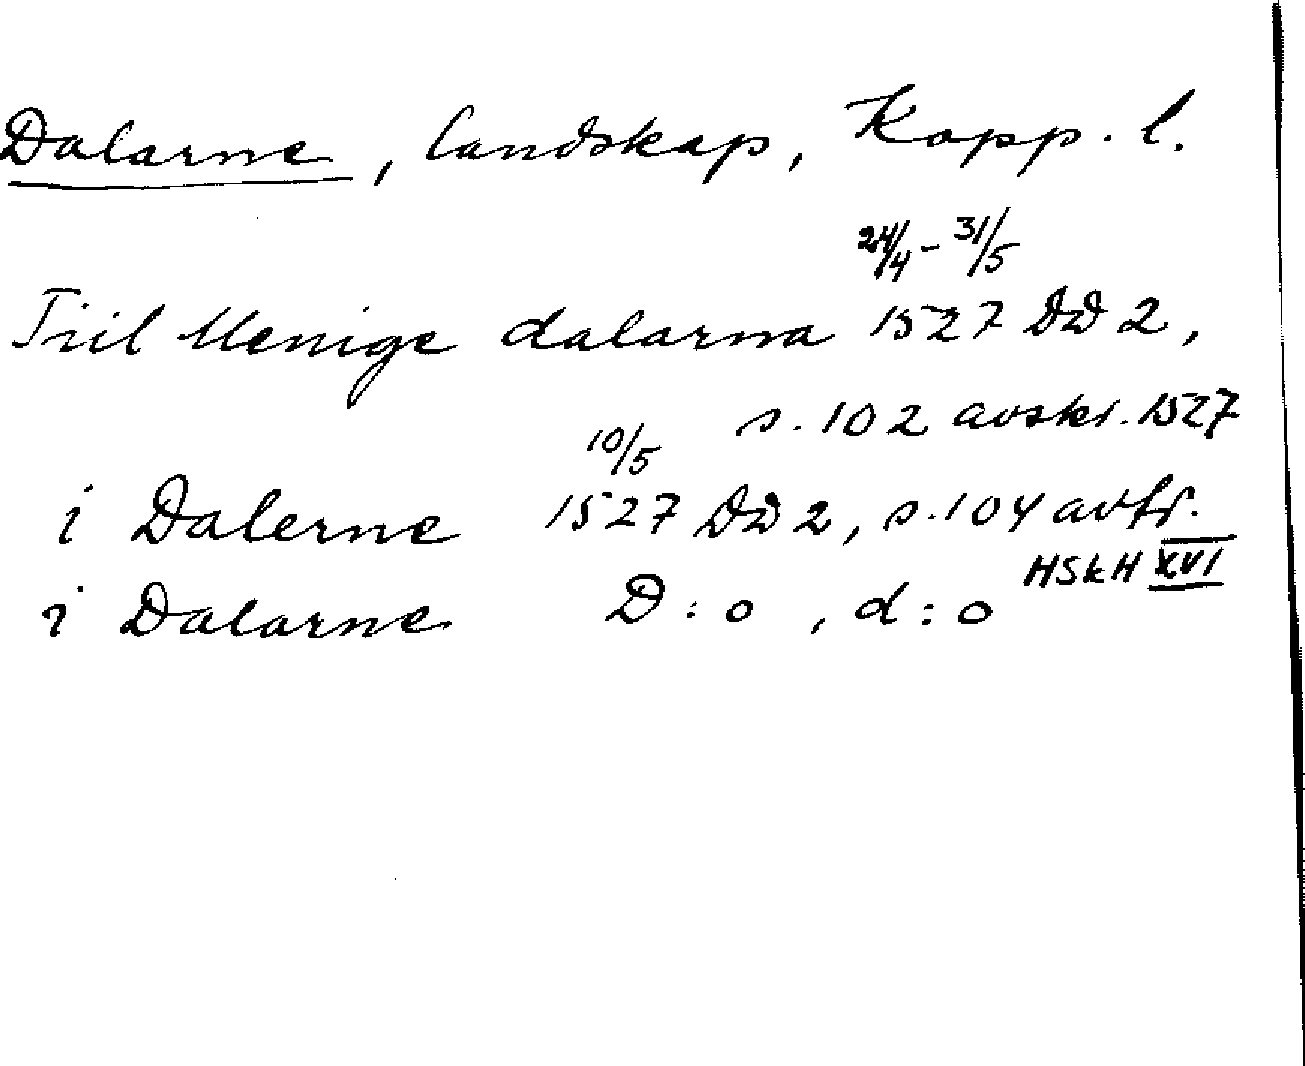 Dalarne, landskap, Kopp. l.
24/4 - 31/5
Tiil Menige dalarna 1527 DD 2,
s. 102 avskr. 1527
10/5
i Dalerne 1527 DD 2, s. 104 avskr.
HSkH XVI
i Dalarne D: o, d: o